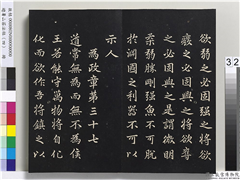 欲弱之必固強之將欲
廢之必固興之將欲奪
之必固與之是謂微明
柔弱勝剛強魚不可脫
於淵國之利器不可以
示人
為政章第三十七
道常無為而無不為侯
王若能守萬物將自化
化而欲作吾將鎮之以